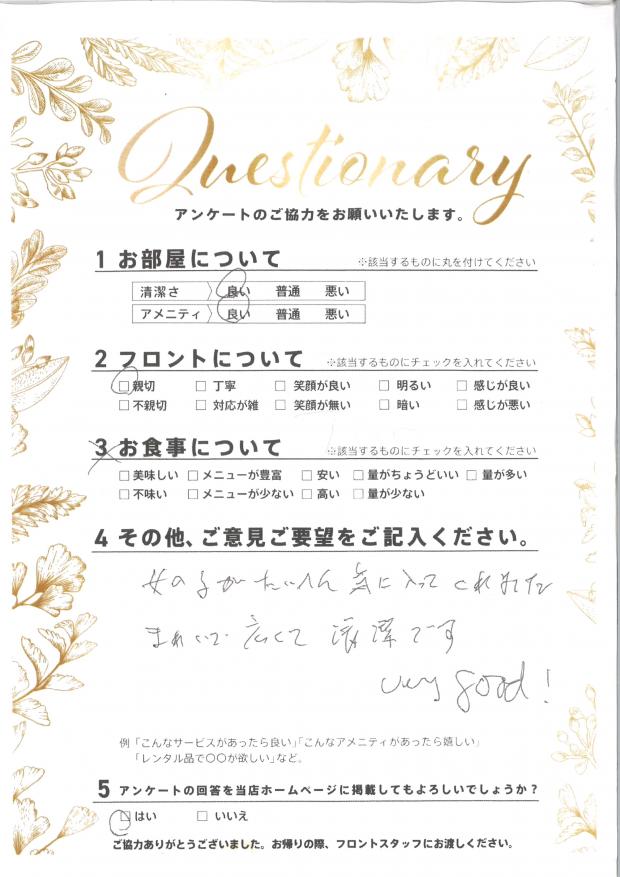 Questionary
アンケートのご協力をお願いいたします。
1 お部屋について ※該当するものに丸を付けてください
清潔さ 良い 普通 悪い
アメニティ 良い 普通 悪い
2 フロントについて ※該当するものにチェックを入れてください
□親切 □丁寧 □笑顔が良い □明るい □感じが良い
□不親切 □対応が雑 □笑顔が無い □暗い □感じが悪い
3 お食事について ※該当するものにチェックを入れてください
□美味しい □メニューが豊富 □安い □量がちょうどいい □量が多い
□不味い □メニューが少ない □高い □量が少ない
4 その他、ご意見ご要望をご記入ください。
女の子がたいへん気に入ってくれました
きれいで 広くて 清潔です
very good!
例「こんなサービスがあったら良い」「こんなアメニティがあったら嬉しい」
「レンタル品で〇〇が欲しい」など。
5 アンケートの回答を当店ホームページに掲載してもよろしいでしょうか?
□はい □いいえ
ご協力ありがとうございました。お帰りの際、フロントスタッフにお渡しください。